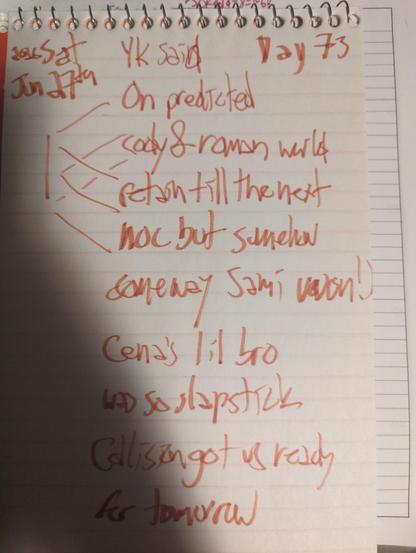 2026 Sat Yk said Day 73
Jun 27th
On predicted
cody & roman would
retain till the next
noc but somehow
someway Sami won!)
Cena's lil bro
was so slapstick
Collision got us ready
for tomorrow